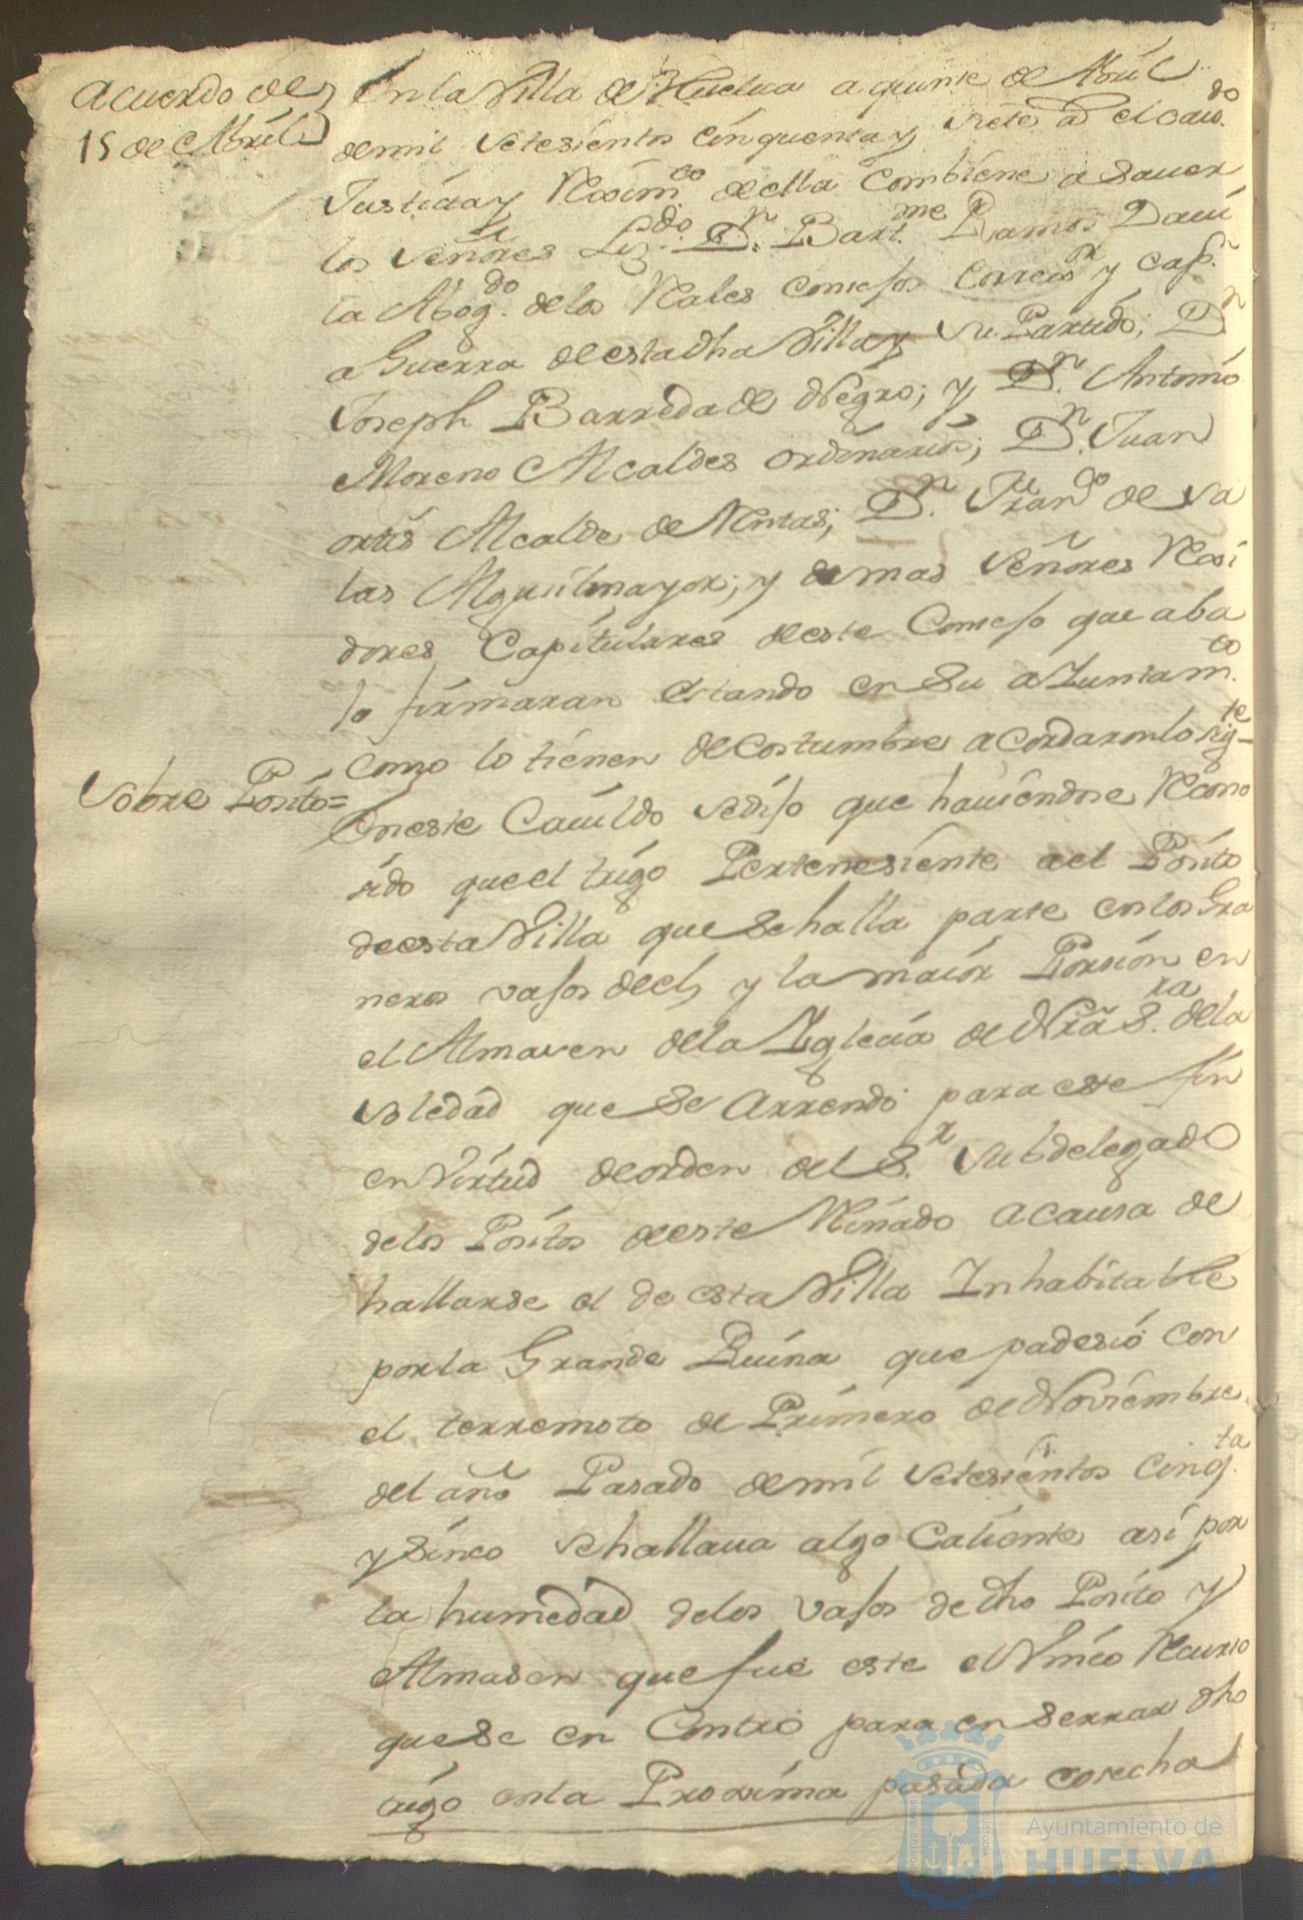 Acuerdo de
15 de Abril
En la Villa de Huelva a quinse de Abril
de mil setesientos cinquenta y siete as. el cavdo.
Justicia y Reximto. de ella combiene a saver
los señores Lizdo. Dn. Bartme. Ramos Davi
la Abogdo. de los Rales consejos Correxr. y capn.
a Guerra de esta dha Villa y su Partido; Dn
Joseph Barreda de Negro; y Dn. Antonio
Moreno Alcaldes ordinarios; Dn. Juan
ortis Alcalde de Rentas; Dn. Franco de Sa
las Alguilmayor; y demas señores Rexi
dores Capitulares de este Consejo que aba
jo firmaran estando en su aiuntamto.
como lo tienen de costumbre acordaron lo sigte
Sobre Posito=
En este Cavildo se dijo que haviendose Recono
sido que el trigo Pertenesiente a el Posito
de esta Villa que se halla parte en los Gra
neros vasos de el, y la maior Porsion en
el Almasen de la Yglecia de Nra Sra. de la
Soledad que se Arrendo para este fin
en Virtud de orden del Sr. Subdelegado
de los Positos de este Reinado a causa de
hallarse el de esta Villa Inhabitable
por la Grande Ruina que padesio con
el terremoto de Primero de Noviembre
del año Pasado de mil setesientos cinqta.
y sinco se hallava algo Caliente asi por
la humedad de los vasos de dho Posito y
Almasen que fue este el Unico Recurso
que se en Contro para en serrar dho
trigo en la Proxima pasada cosecha
Ayuntamiento de
HUELVA